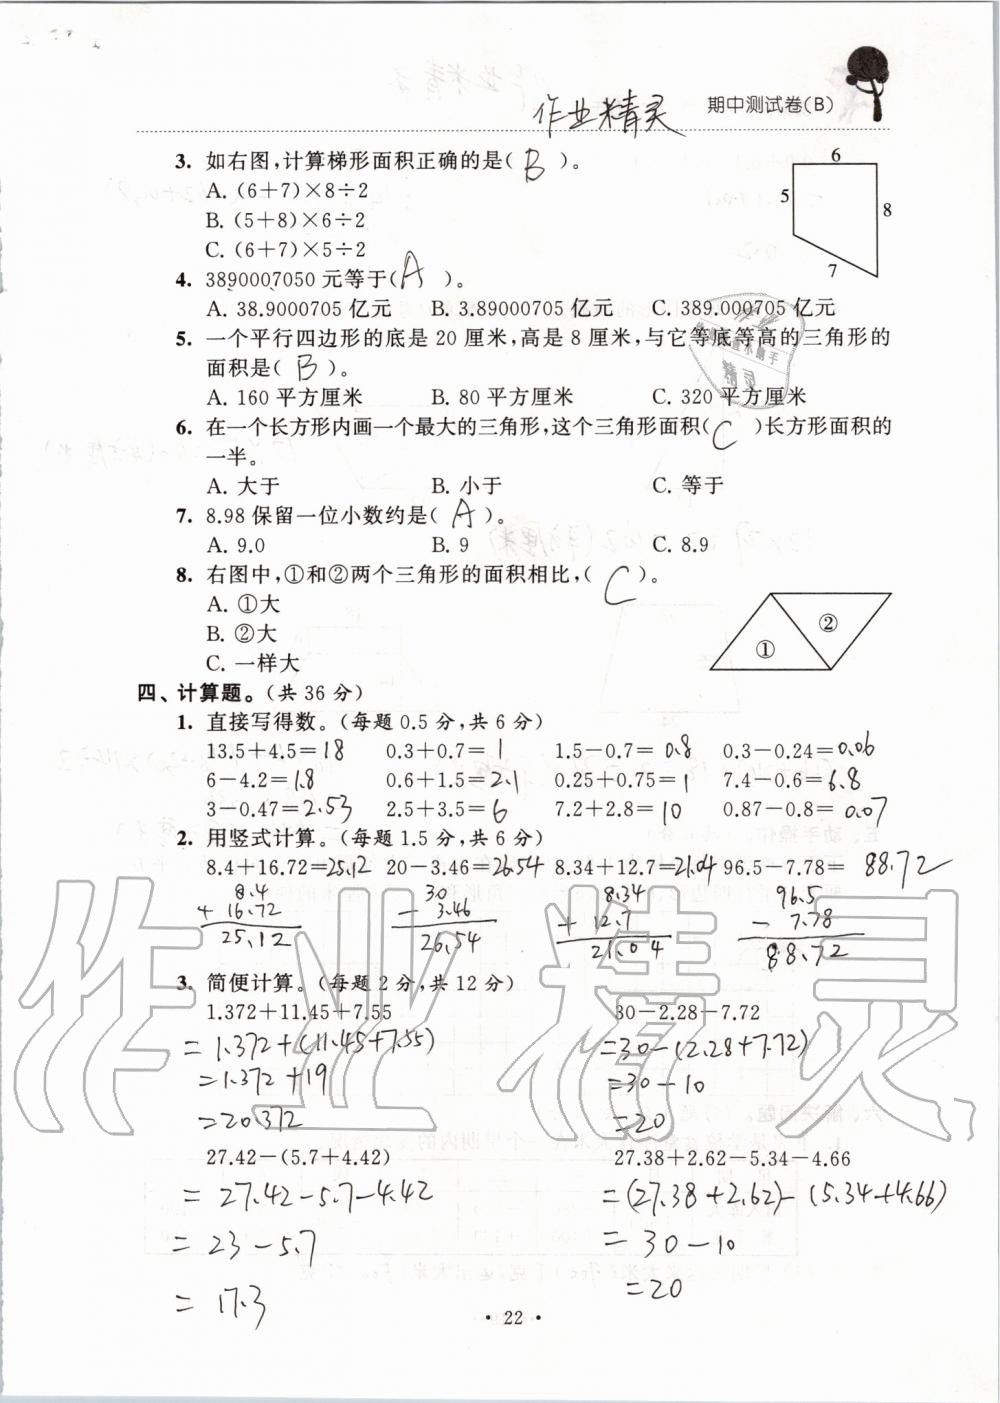 期中测试卷(B)
作业精灵
3. 如右图,计算梯形面积正确的是( B )。
A. (6+7)×8÷2
B. (5+8)×6÷2
C. (6+7)×5÷2
6
5
8
7
4. 3890007050 元等于( A )。
A. 38.9000705 亿元 B. 3.89000705 亿元 C. 389.000705 亿元
5. 一个平行四边形的底是 20 厘米,高是 8 厘米,与它等底等高的三角形的
面积是( B )。
A. 160 平方厘米 B. 80 平方厘米 C. 320 平方厘米
6. 在一个长方形内画一个最大的三角形,这个三角形面积( C )长方形面积的
一半。
A. 大于 B. 小于 C. 等于
7. 8.98 保留一位小数约是( A )。
A. 9.0 B. 9 C. 8.9
8. 右图中,①和②两个三角形的面积相比,( C )。
A. ①大
B. ②大
C. 一样大
① ②
四、计算题。(共 36 分)
1. 直接写得数。(每题 0.5 分,共 6 分)
13.5+4.5=18 0.3+0.7=1 1.5-0.7=0.8 0.3-0.24=0.06
6-4.2=1.8 0.6+1.5=2.1 0.25+0.75=1 7.4-0.6=6.8
3-0.47=2.53 2.5+3.5=6 7.2+2.8=10 0.87-0.8=0.07
2. 用竖式计算。(每题 1.5 分,共 6 分)
8.4+16.72=25.12 20-3.46=26.54 8.34+12.7=21.04 96.5-7.78=88.72
8.4 30 8.34 96.5
+ 16.72 - 3.46 + 12.7 - 7.78
25.12 26.54 21.04 88.72
3. 简便计算。(每题 2 分,共 12 分)
1.372+11.45+7.55 30-2.28-7.72
=1.372+(11.45+7.55) =30-(2.28+7.72)
=1.372+19 =30-10
=20.372 =20
27.42-(5.7+4.42) 27.38+2.62-5.34-4.66
=27.42-5.7-4.42 =(27.38+2.62)-(5.34+4.66)
=23-5.7 =30-10
=17.3 =20
作业精灵
• 22 •